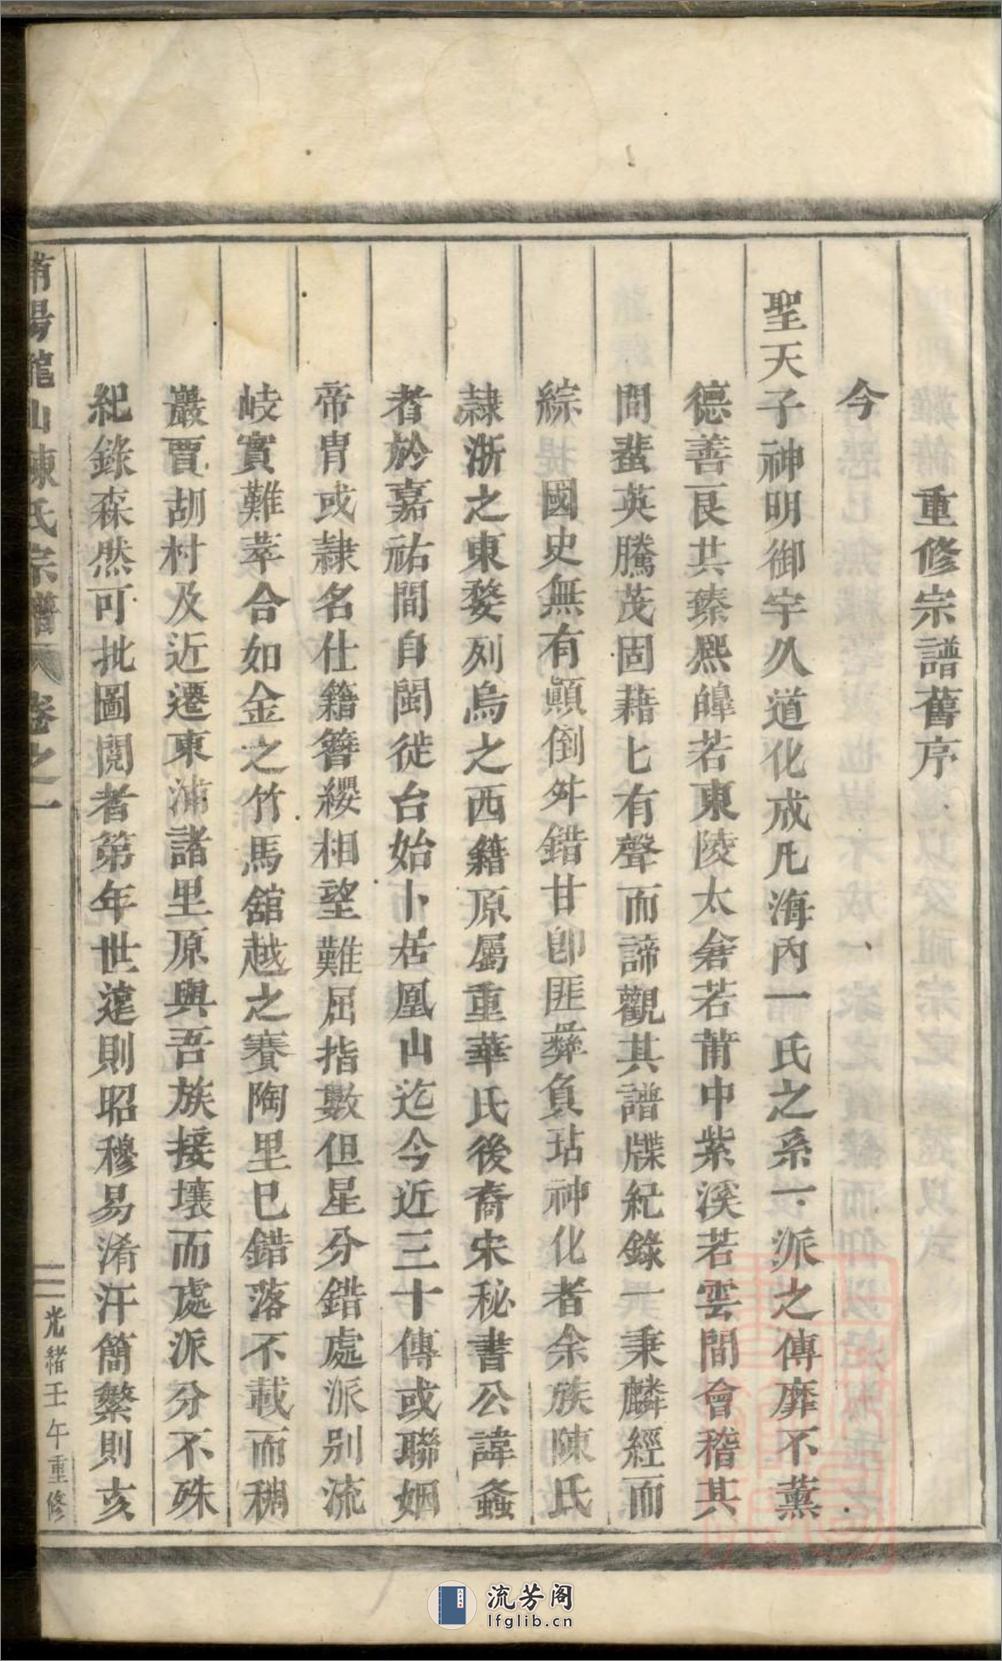 重修宗譜舊序
今
聖天子神明御宇久道化成凡海內一氏之系一派之傳靡不薰
德善良共臻熙皥若東陵太倉若莆中紫溪若雲間會稽其
間蜚英騰茂固藉乚有聲而諦觀其譜牒紀錄一秉麟經而
綜國史無有顛倒舛錯甘卽匪彝負玷神化者余族陳氏
隷浙之東婺列烏之西籍原屬重華氏後裔宋秘書公諱鱻
者於嘉祐間自閩徙台始卜居凰山迄今近三十傳或聯姻
帝胄或隷名仕籍簪纓相望難屈指數但星分錯處派別流
岐實難萃合如金之竹馬舘越之賽陶里已錯落不載而稠
巖賈胡村及近遷東浦諸里原與吾族接壤而處派分不殊
紀錄森然可批圖閱者第年世遠則昭穆易淆汗簡繁則亥
南陽龍山陳氏宗譜 卷之一
光緒壬午重修
流芳阁
lfglib.cn